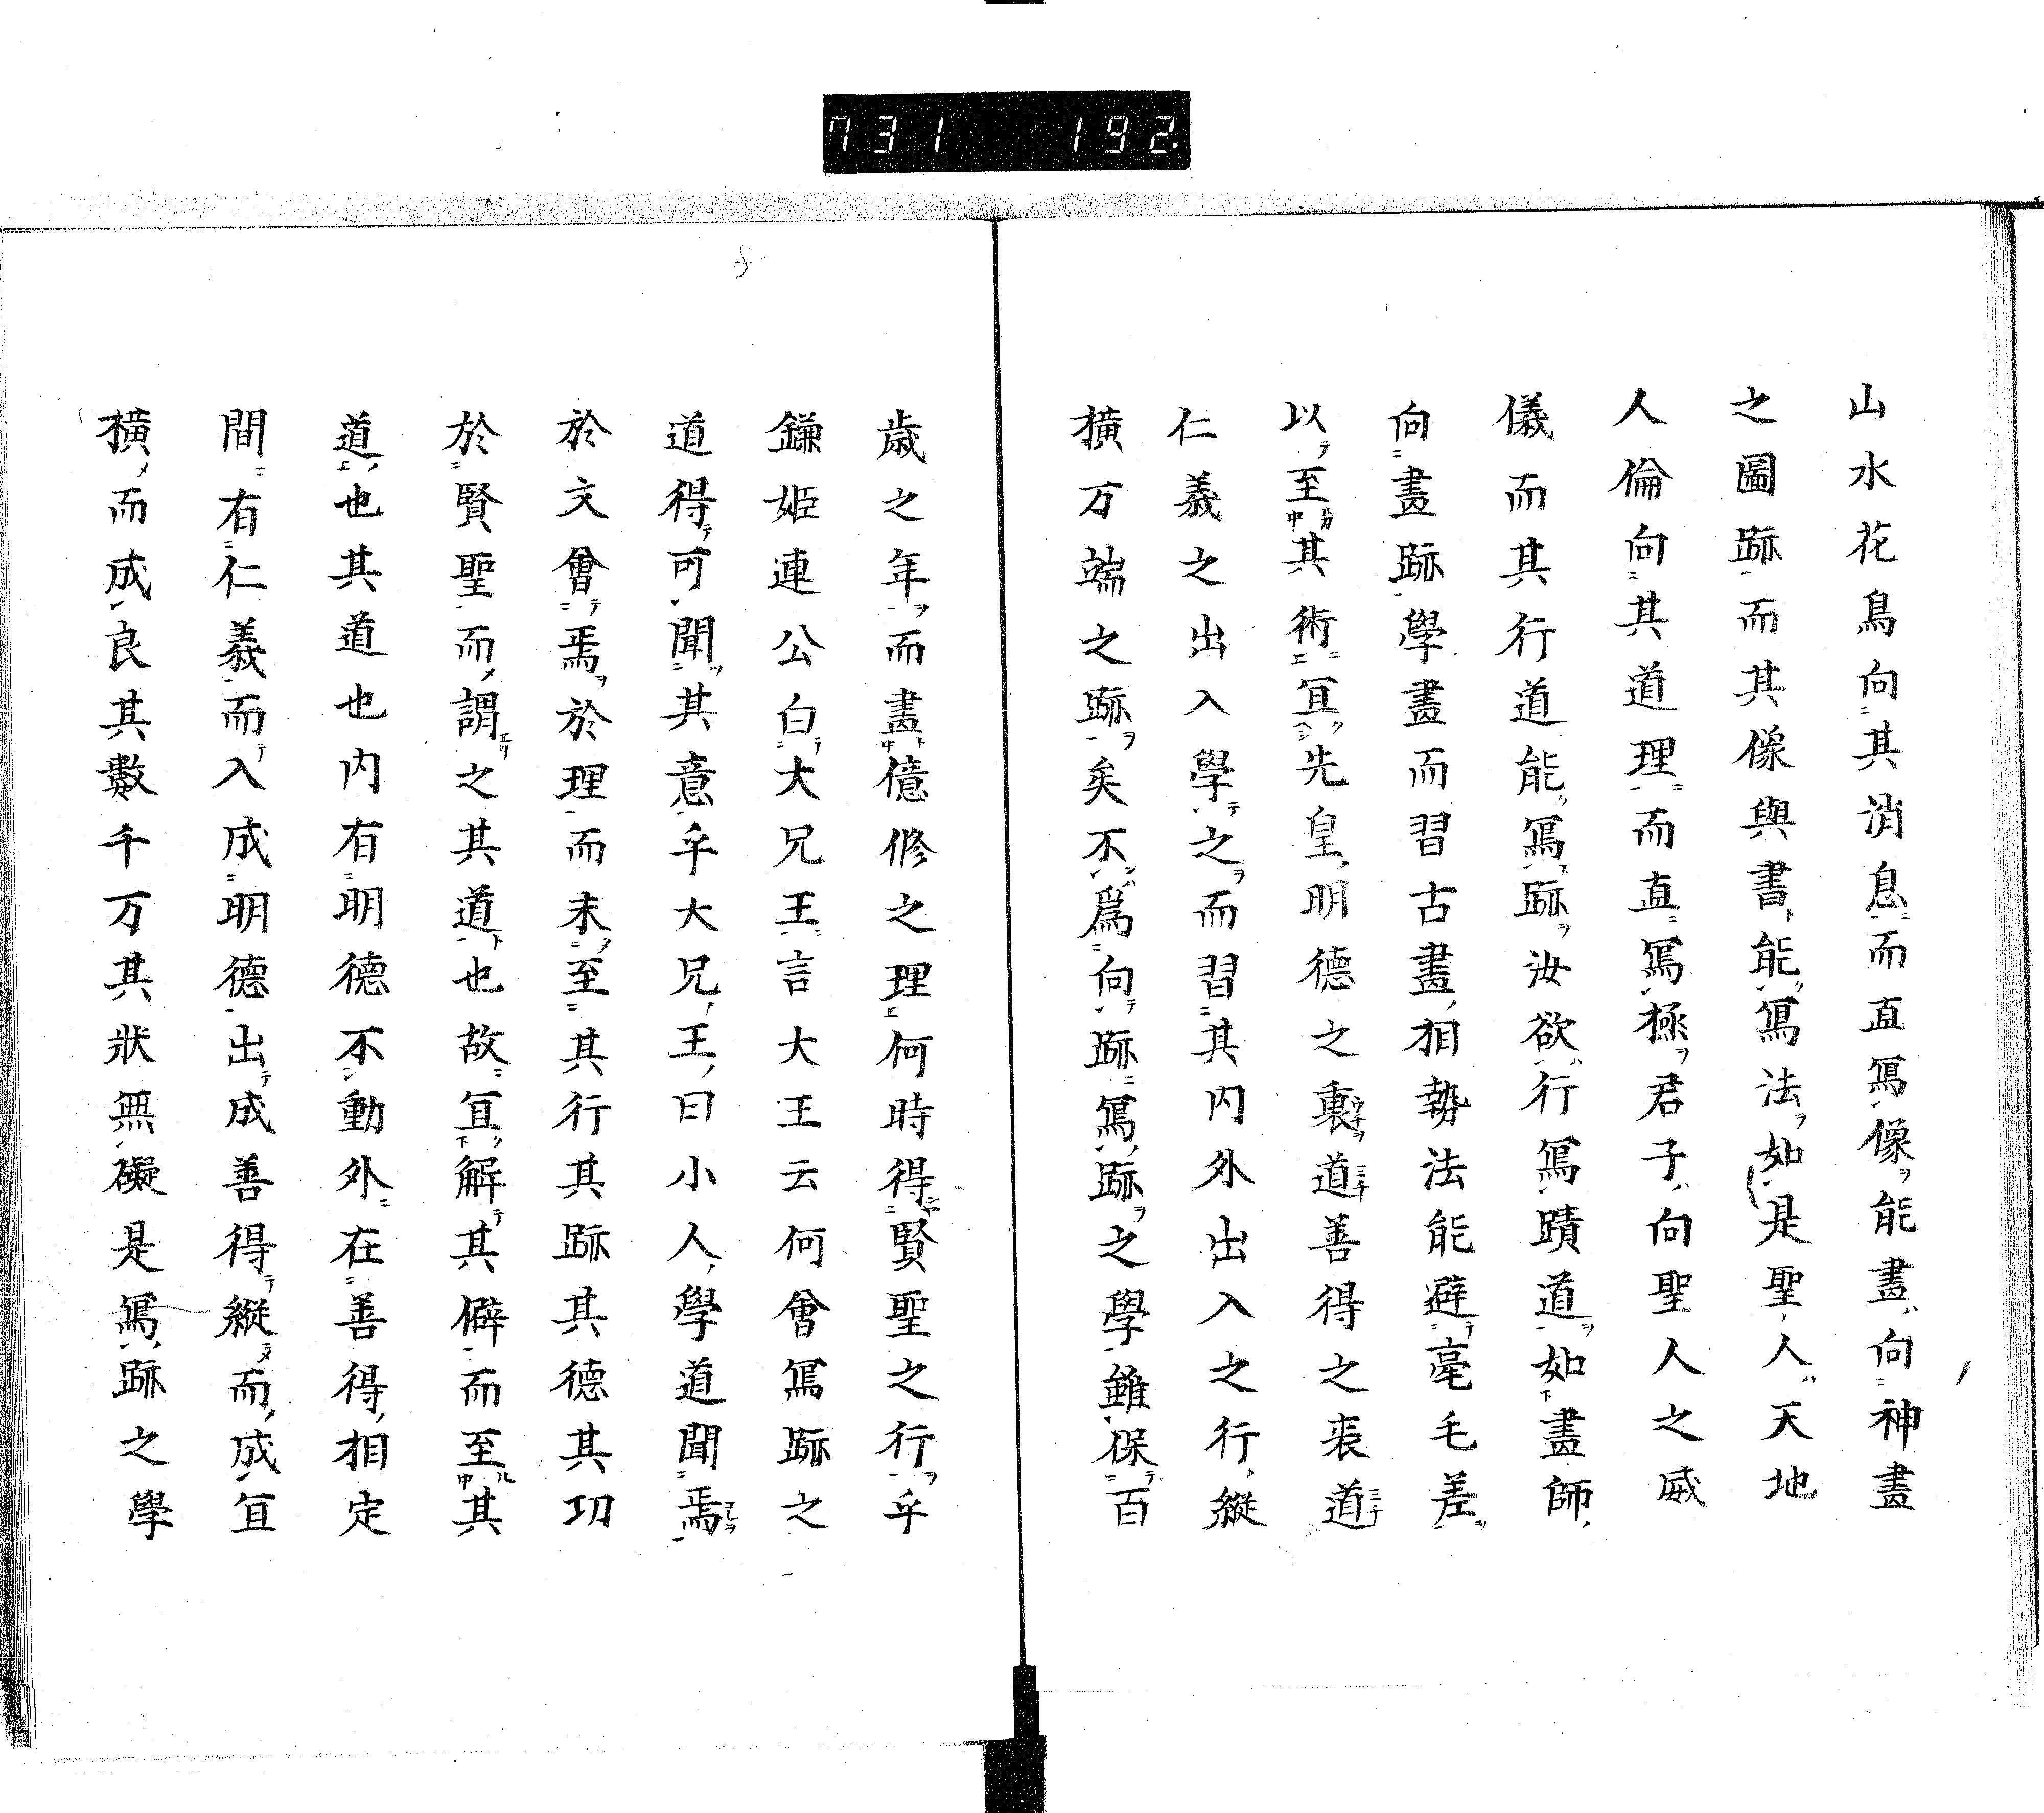 731 192
山水花鳥向其消息而直寫像能畫向神畫
之圖跡而其像與書能寫法如是聖人天地
人倫向其道理而直寫極君子向聖人之威
儀而其行道能寫跡汝欲行寫蹟道如畫師
向畫跡學畫而習古畫相勢法能避毫毛差
以至其術冝先皇明德之裏道善得之表道
仁義之出入學之而習其内外出入之行縱
橫万端之跡矣不爲向跡寫跡之學雖保百
歲之年而盡億修之理何時得賢聖之行乎
鎌姫連公白大兄王言大王云何會寫跡之
道得可聞其意乎大兄王曰小人學道聞焉
於文會焉於理而未至其行其跡其德其功
於賢聖而謂之其道也故冝解其僻而至其
道也其道也内有明德不動外在善得相定
間有仁義而入成明德出成善得縱而成冝
橫而成良其數千万其狀無礙是寫跡之學